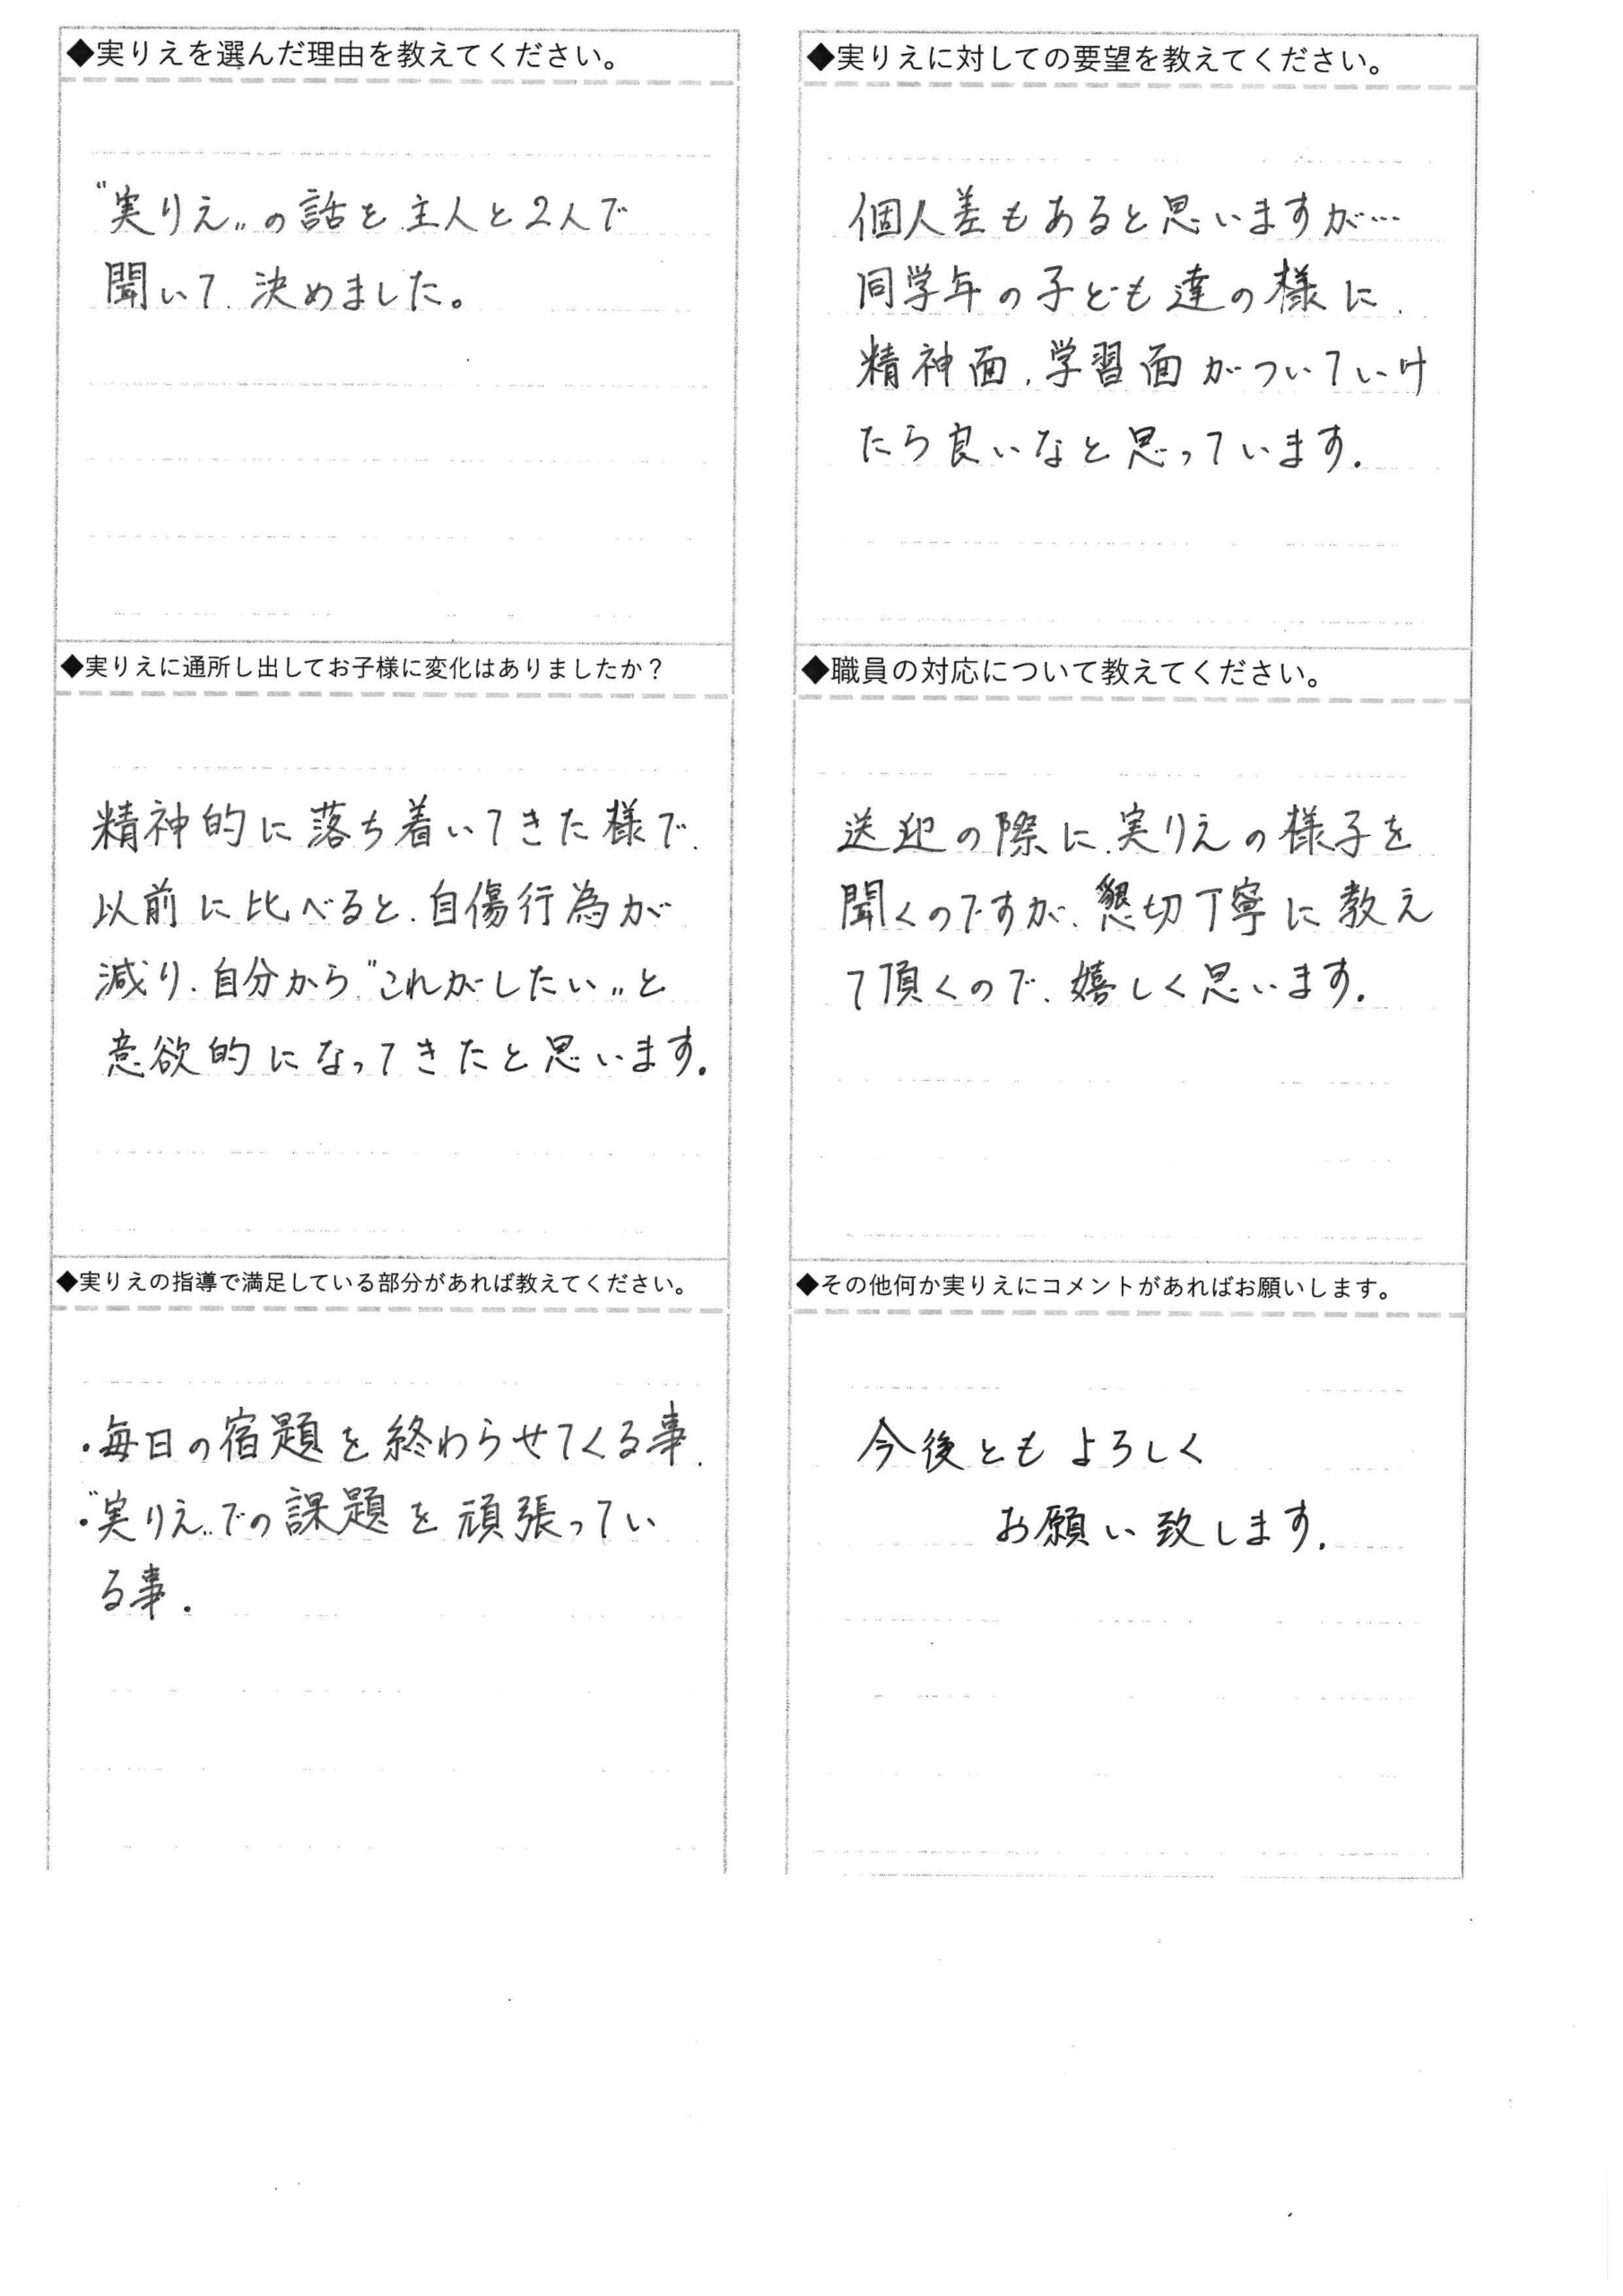 ◆実りえを選んだ理由を教えてください。
“実りえ„の話を主人と2人で
聞いて、決めました。
◆実りえに通所し出してお子様に変化はありましたか？
精神的に落ち着いてきた様で、
以前に比べると、自傷行為が
減り、自分から“これがしたい„と
意欲的になってきたと思います。
◆実りえの指導で満足している部分があれば教えてください。
・毎日の宿題を終わらせてくる事、
・“実りえ„での課題を頑張ってい
る事。
◆実りえに対しての要望を教えてください。
個人差もあると思いますが…
同学年の子ども達の様に、
精神面、学習面がついていけ
たら良いなと思っています。
◆職員の対応について教えてください。
送迎の際に、実りえの様子を
聞くのですが、懇切丁寧に教え
て頂くので、嬉しく思います。
◆その他何か実りえにコメントがあればお願いします。
今後ともよろしく
お願い致します。